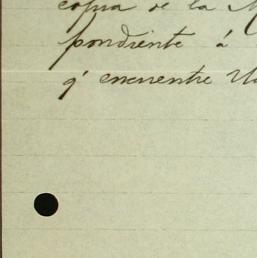 copia de la
pondiente á
q' encuentre